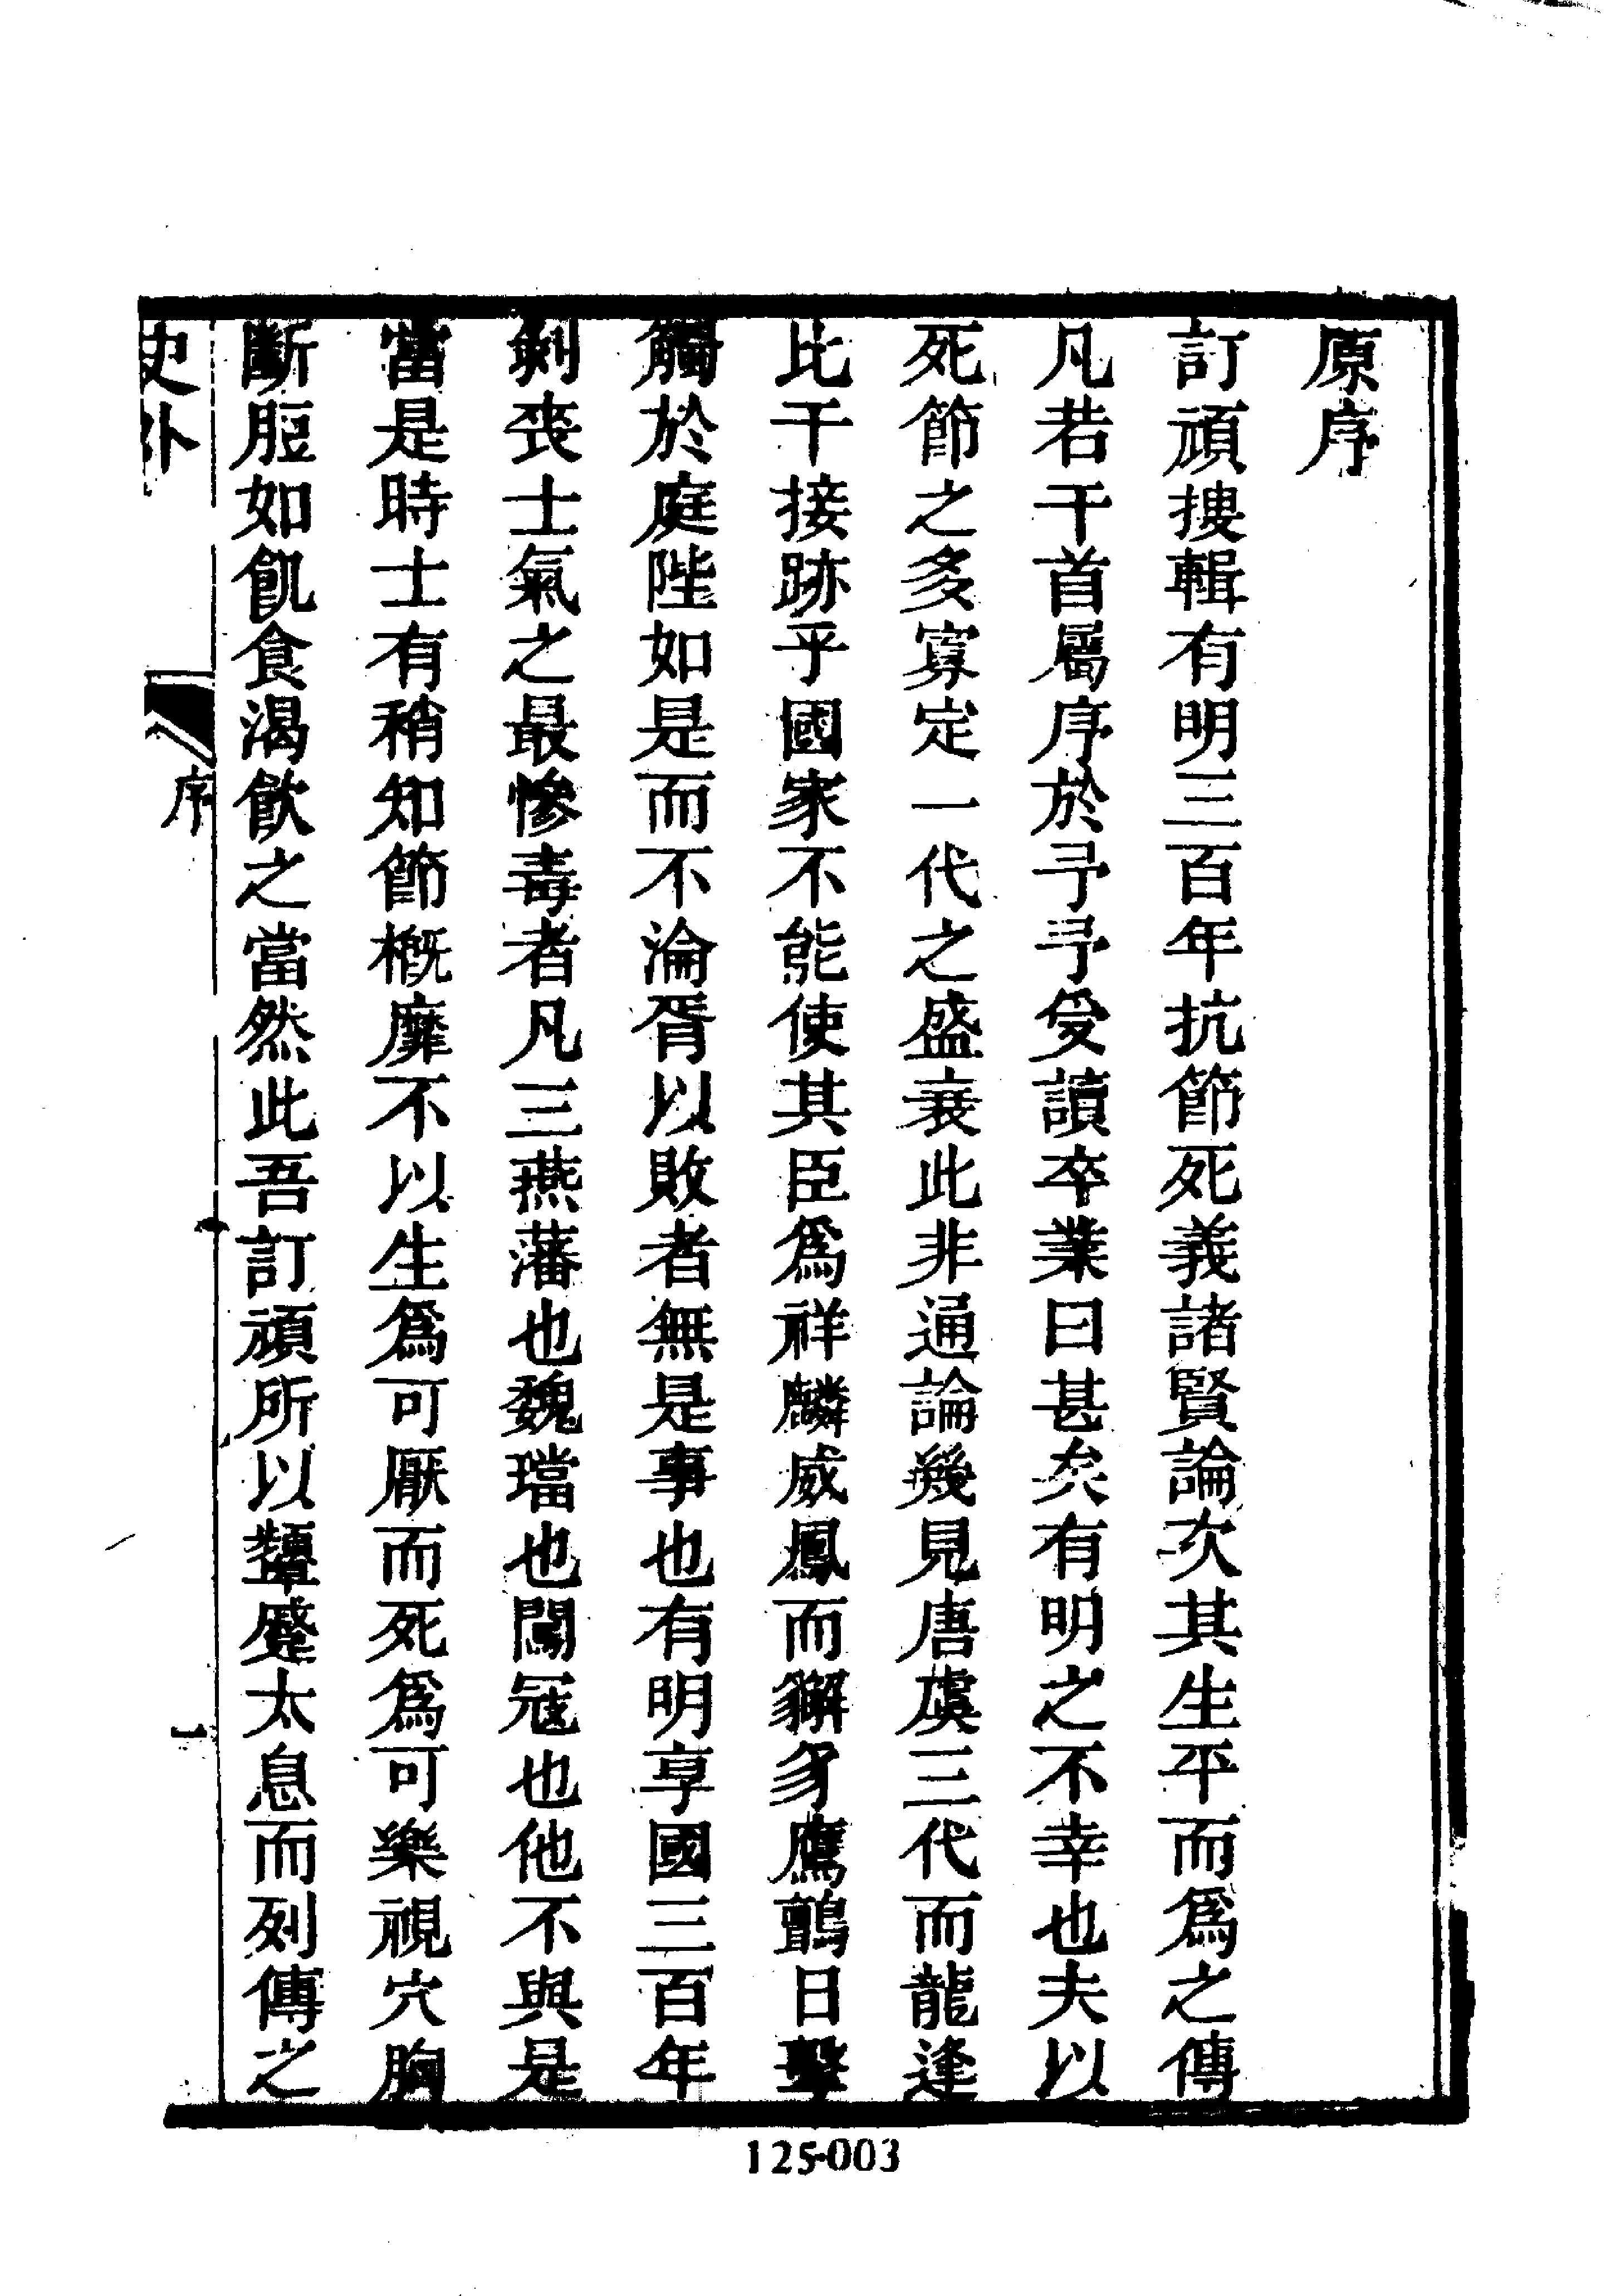 原序
訂頑摟輯有明三百年抗節死義諸賢論次其生平而爲之傳
凡若干首屬序於予予受讀卒業曰甚矣有明之不幸也夫以
死節之多寡定一代之盛衰此非通論幾見唐虞三代而龍逢
比干接跡乎國家不能使其臣爲祥麟威鳳而獬豸鷹鸇日擊
觸於庭陛如是而不淪胥以敗者無是事也有明享國三百年
剝喪士氣之最慘毒者凡三燕藩也魏璫也闖冦也他不與是
當是時士有稍知節概靡不以生爲可厭而死爲可樂視穴胸
斷脰如飢食渴飮之當然此吾訂頑所以顰蹙太息而列傳之
史外
序
一
125-003